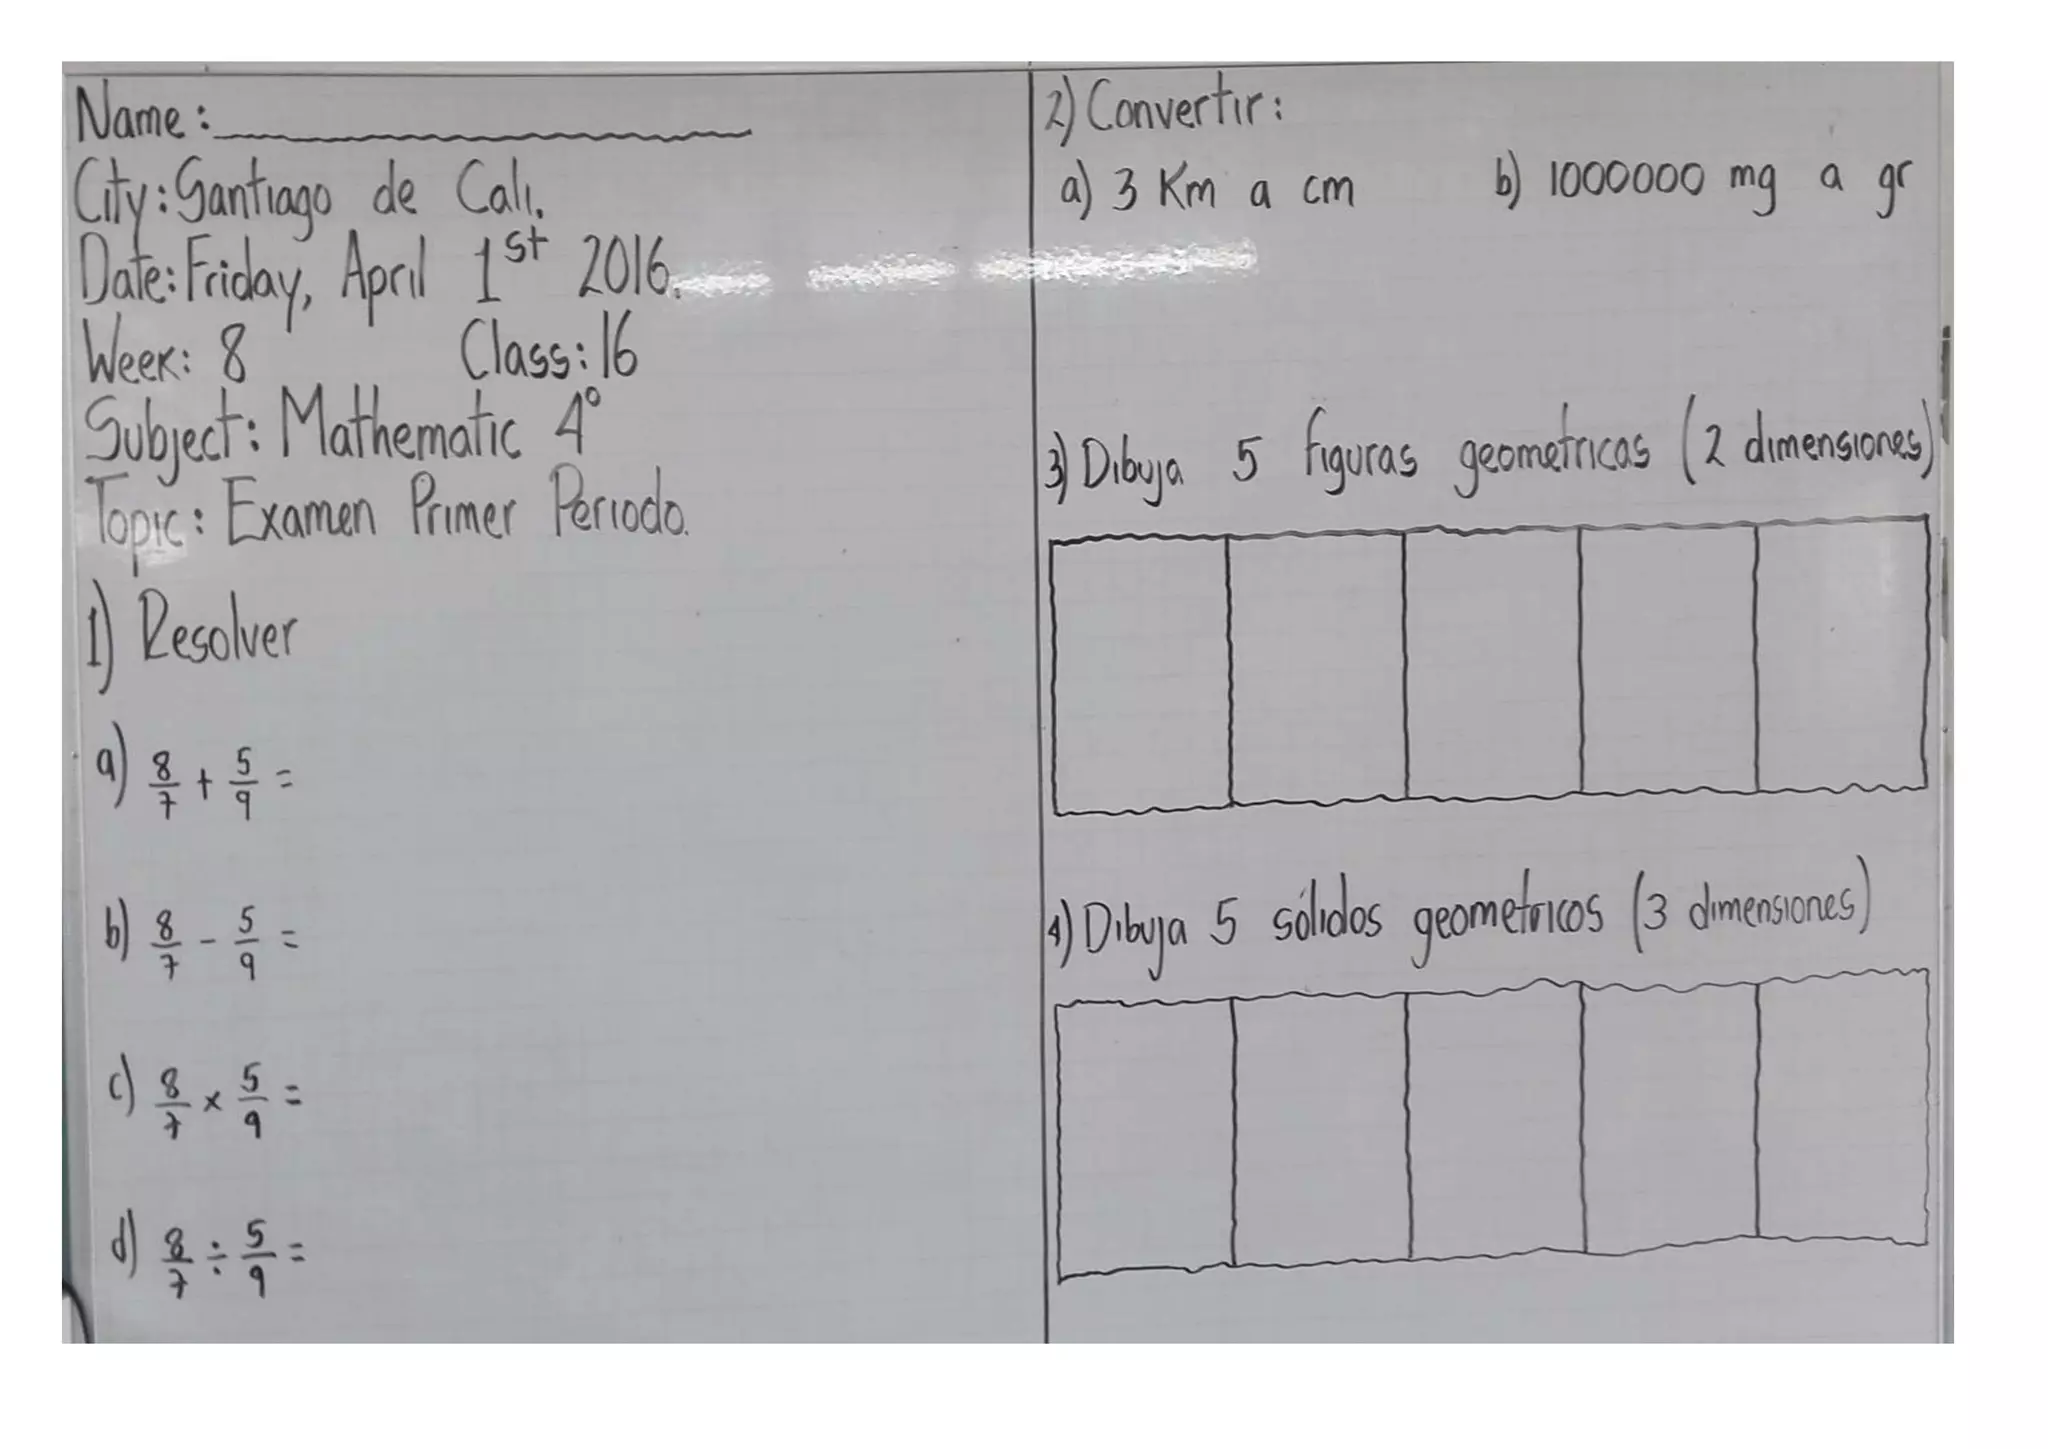 Name:
City: Santiago de Cali.
Date: Friday, April 1st 2016.
Week: 8 Class: 16
Subject: Mathematic 4°
Topic: Examen Primer Periodo.
1) Resolver
a) 8/7 + 5/9 =
b) 8/7 - 5/9 =
c) 8/7 x 5/9 =
d) 8/7 ÷ 5/9 =
2) Convertir:
a) 3 Km a cm b) 1000000 mg a gr
3) Dibuja 5 figuras geometricas (2 dimensiones)
4) Dibuja 5 sólidos geometricos (3 dimensiones)